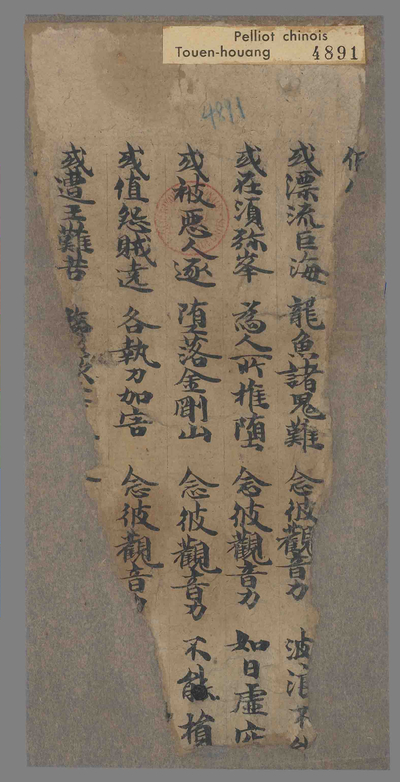 Pelliot chinois
Touen-houang 4891
4891
或漂流巨海 龍魚諸鬼難 念彼觀音力 波浪不
或在須弥峯 為人所推堕 念彼觀音力 如日虛空
或被惡人逐 堕落金剛山 念彼觀音力 不能損
或值怨賊遶 各執刀加害 念彼觀音力
或遭王難苦 臨